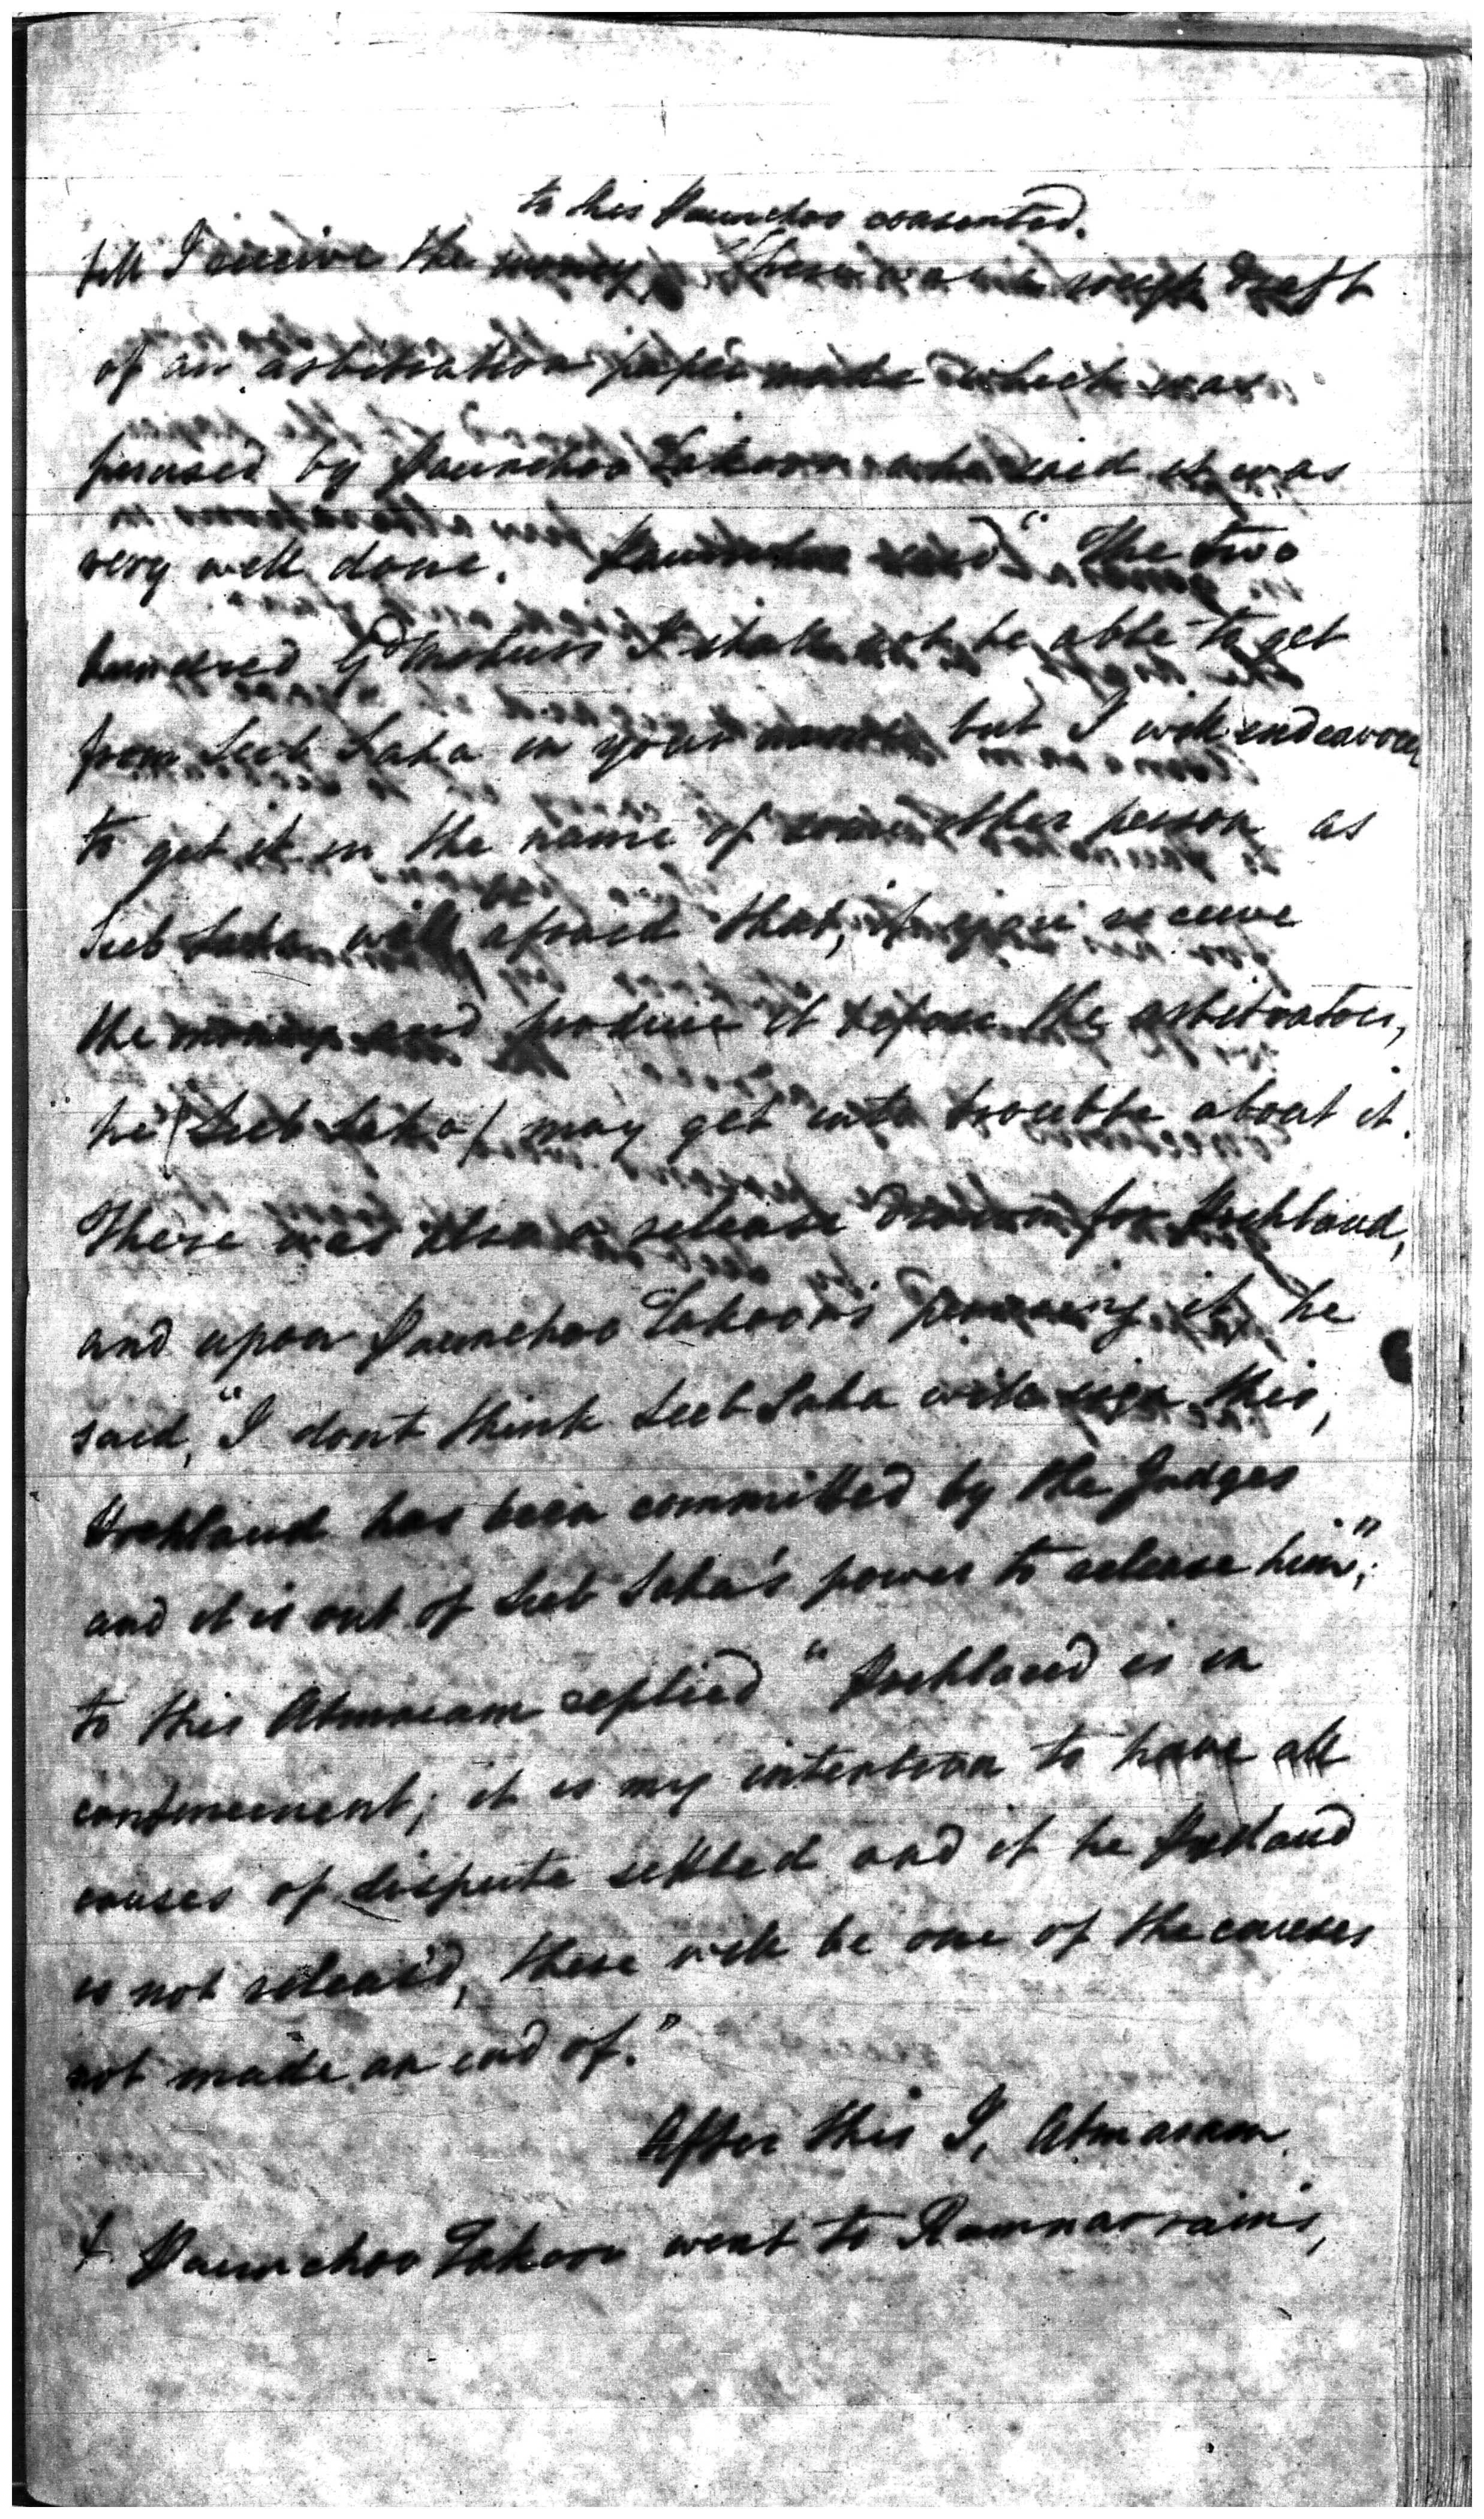 to this Paunchoo consented.
till I receive the money. There was a rough draft
of an arbitration paper made which was
perused by Paunchoo Takoor who said it was
very well done. Paunchoo said "The two
hundred Gd Mohurs I shall not be able to get
from Seeb Saha in your name but I will endeavour
to get it in the name of some other person as
Seeb Saha will be afraid that, if you receive
the money and produce it before the arbitrators,
he (Seeb Saha) may get into trouble about it.
There was also a release drawn for Puchlaud,
and upon Paunchoo Takoor's perusing it he
said, "I dont think Seeb Saha will sign this,
Puchlaud has been committed by the Judges
and it is out of Seeb Saha's power to release him";
to this Atmaram replied "Puchlaud is in
confinement; it is my intention to have all
causes of dispute settled and if he
is not releas'd, there will be one of the causes
not made an end of."
After this I, Atmaram
& Paunchoo Takoor went to Ramnarrain's,